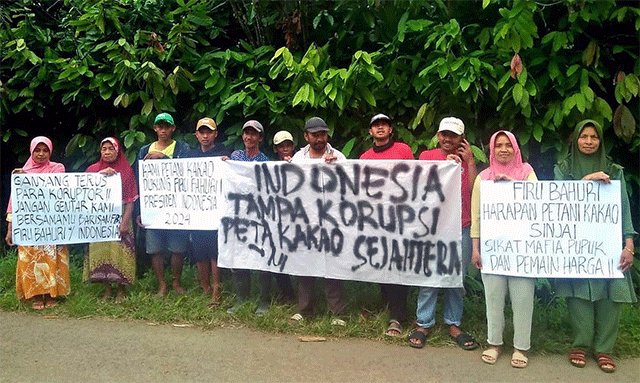 GANYANG TERUS
PARA KORUPTOR !!
JANGAN GENTAR KAMI
BERSAMAMU BARISAN
FIRLI BAHURI INDONESIA
KAMI PETANI KAKAO
DUKUNG FIRLI BAHURI
PRESIDEN INDONESIA
2024
INDONESIA
TAMPA KORUPSI
PETA KAKAO SEJAHTERA
FIRLI BAHURI
HARAPAN PETANI KAKAO
SINJAI
SIKAT MAFIA PUPUK
DAN PEMAIN HARGA !!